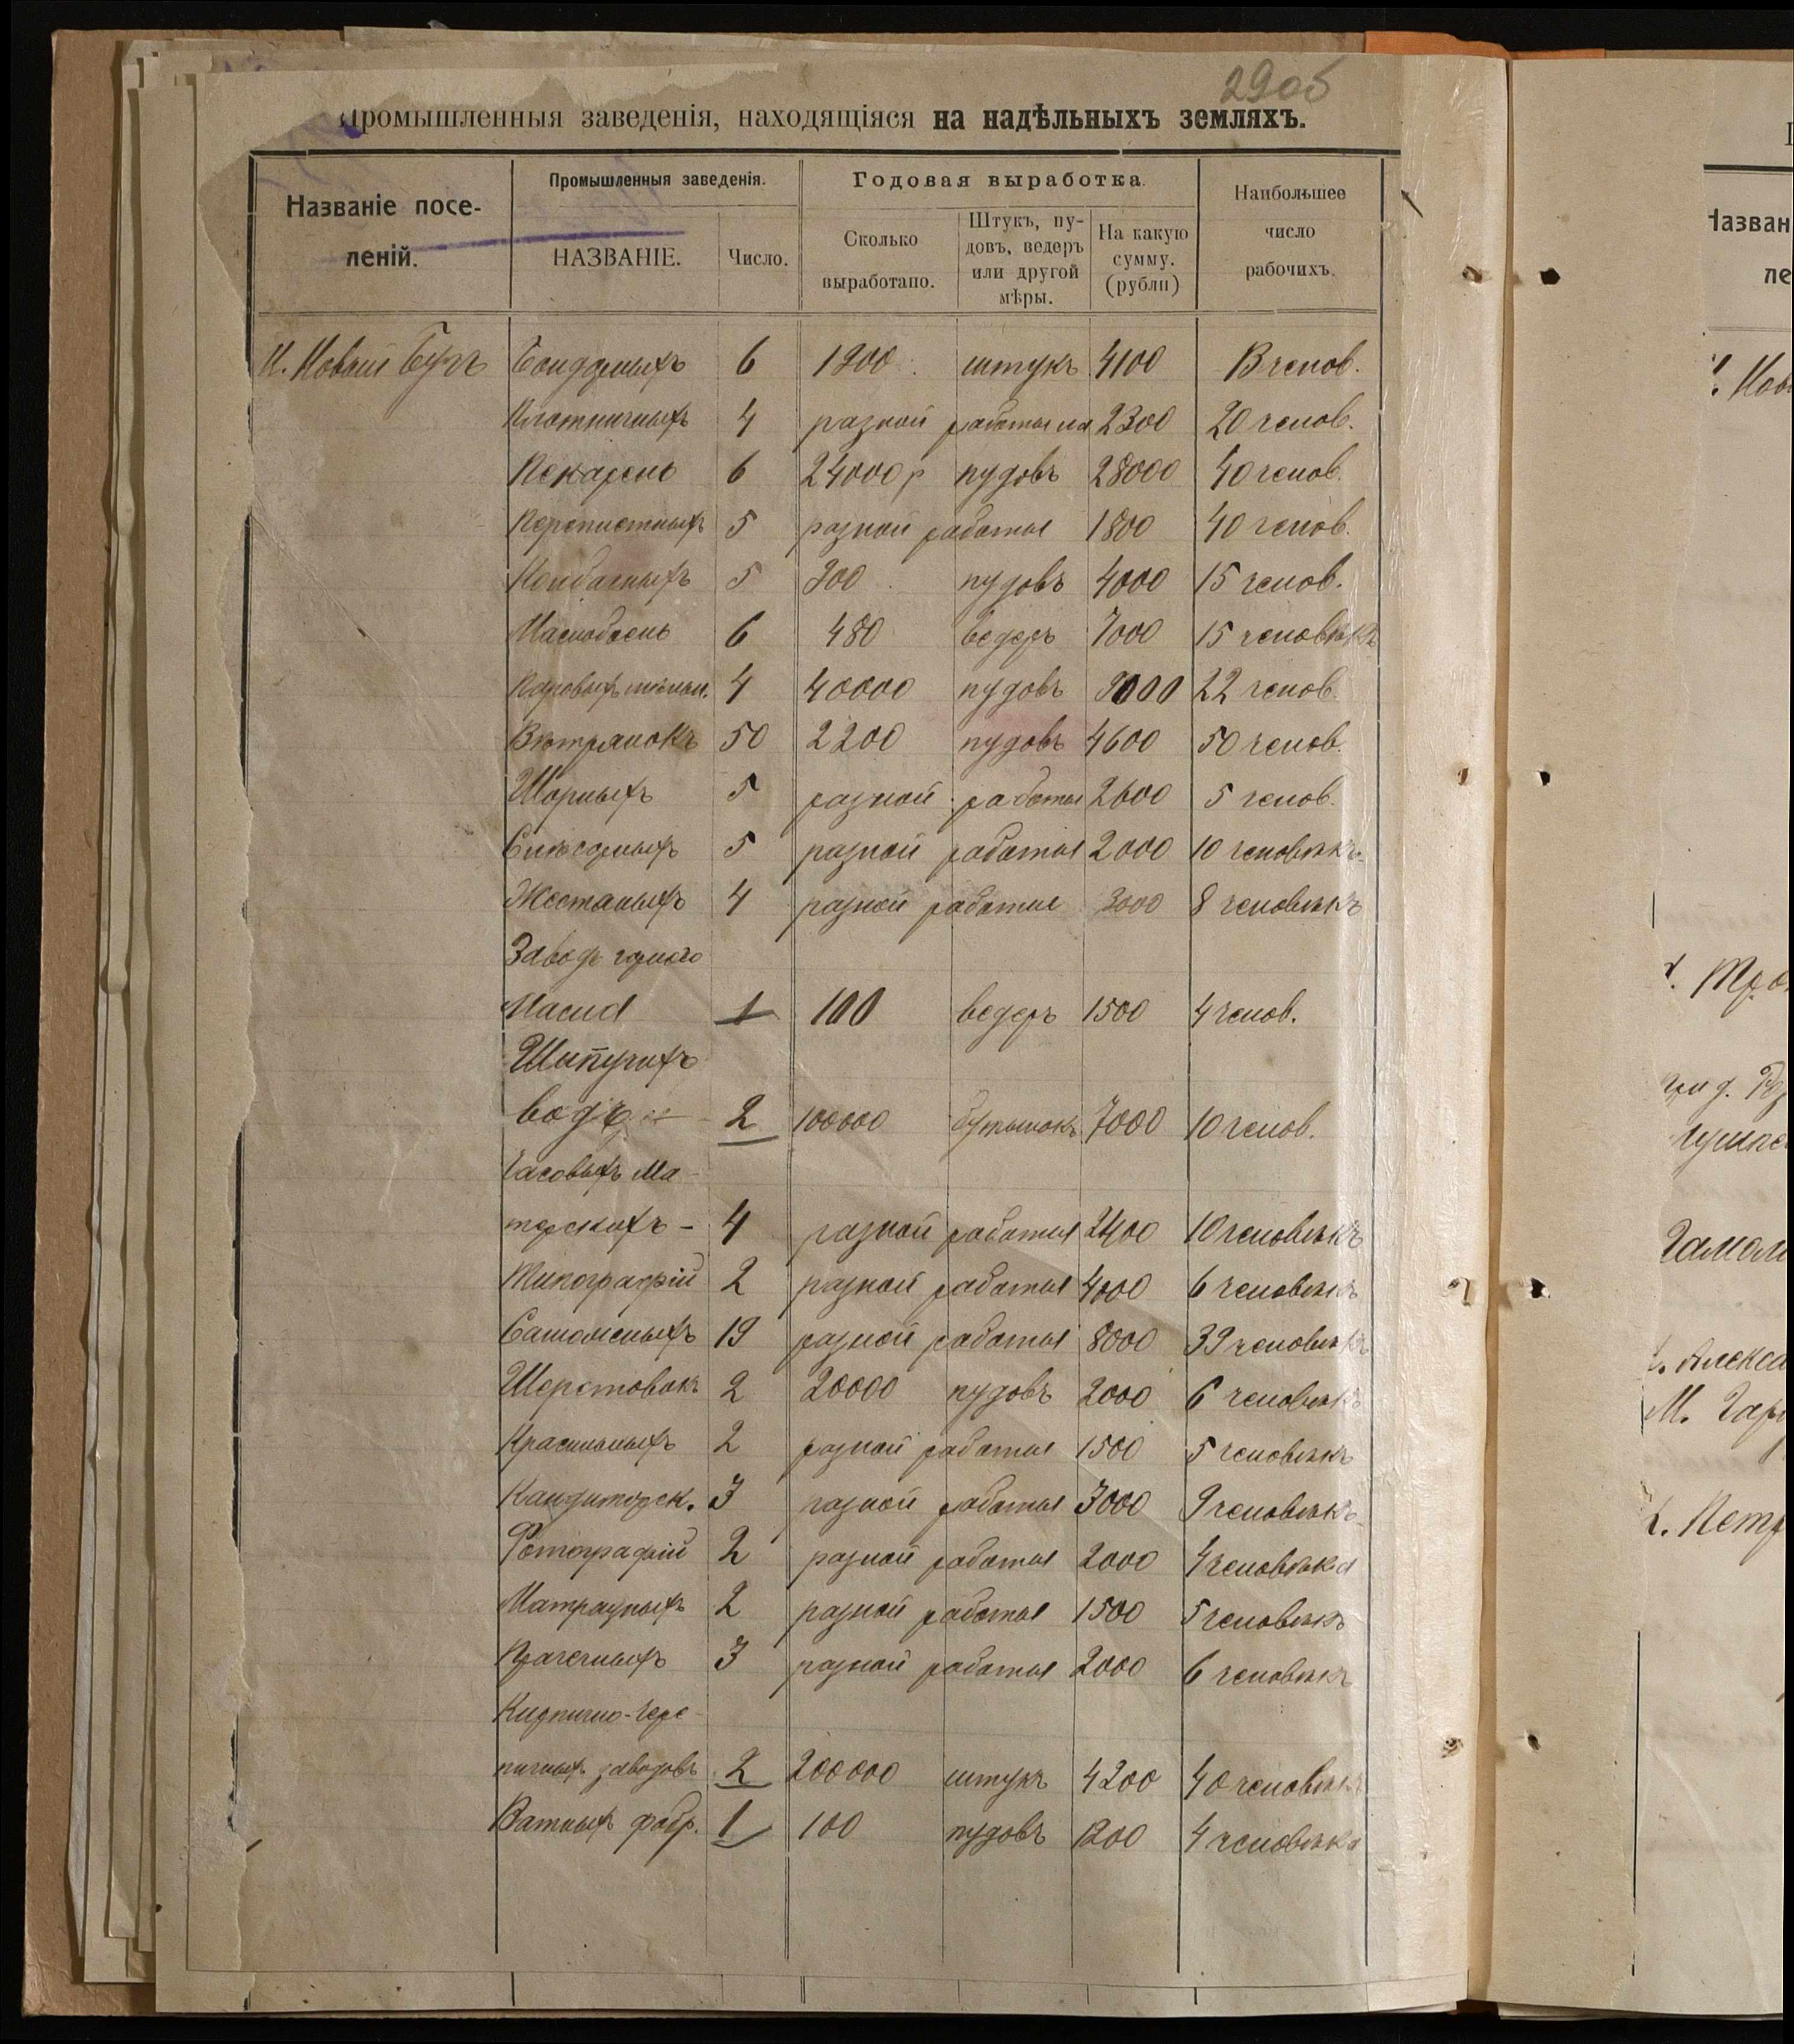 29об
Промышленныя заведенія, находящіяся на надѣльныхъ земляхъ.
Названіе посе-
леній.
Промышленныя заведенія.
НАЗВАНІЕ.
Число.
Годовая выработка.
Сколько
выработано.
Штукъ, пу-
довъ, ведеръ
или другой
мѣры.
На какую
сумму.
(рубли)
Наибольшее
число
рабочихъ.
М. Новый Бугъ Бондарныхъ 6 1200 штукъ 4100 13 челов.
Плотничныхъ 4 разной работы на 2300 20 челов.
Пекарень 6 24000 пудовъ 28000 40 челов.
5 разной работы 1800 40 челов.
Колбасныхъ 5 300 пудовъ 4000 15 челов.
Маслобоень 6 480 ведеръ 7000 15 человѣкъ
Паровыхъ мельн. 4 40000 пудовъ 22 челов.
Вѣтрянокъ 50 2200 пудовъ 4600 50 челов.
Шорныхъ 5 разной работы 2600 5 челов.
Слѣсарныхъ 5 разной работы 2000 10 человѣкъ
Жестяныхъ 4 разной работы 3000 8 человѣкъ
Заводъ
Масла 1 100 ведеръ 1500 4 челов.
Шипучихъ
водъ 2 100000 бутылокъ 7000 10 челов.
Часовыхъ ма-
терскихъ - 4 разной работы 2400 10 человѣкъ
Типографій 2 разной работы 4000 6 человѣкъ
Сапожныхъ 19 разной работы 8000 39 человѣкъ
Шерстобокъ 2 20000 пудовъ 2000 6 человѣкъ
Красильныхъ 2 разной работы 1500 5 человѣкъ
Кандиторск. 3 разной работы 3000 9 человѣкъ
Фотографій 2 разной работы 2000 4 человѣка
Матрацныхъ 2 разной работы 1500 5 человѣкъ
Прачечныхъ 3 разной работы 2000 6 человѣкъ
Кирпично-чере-
пичныхъ заводовъ 2 200000 штукъ 4200 40 человѣкъ
Ватныхъ фабр. 1 100 пудовъ 1200 4 человѣка